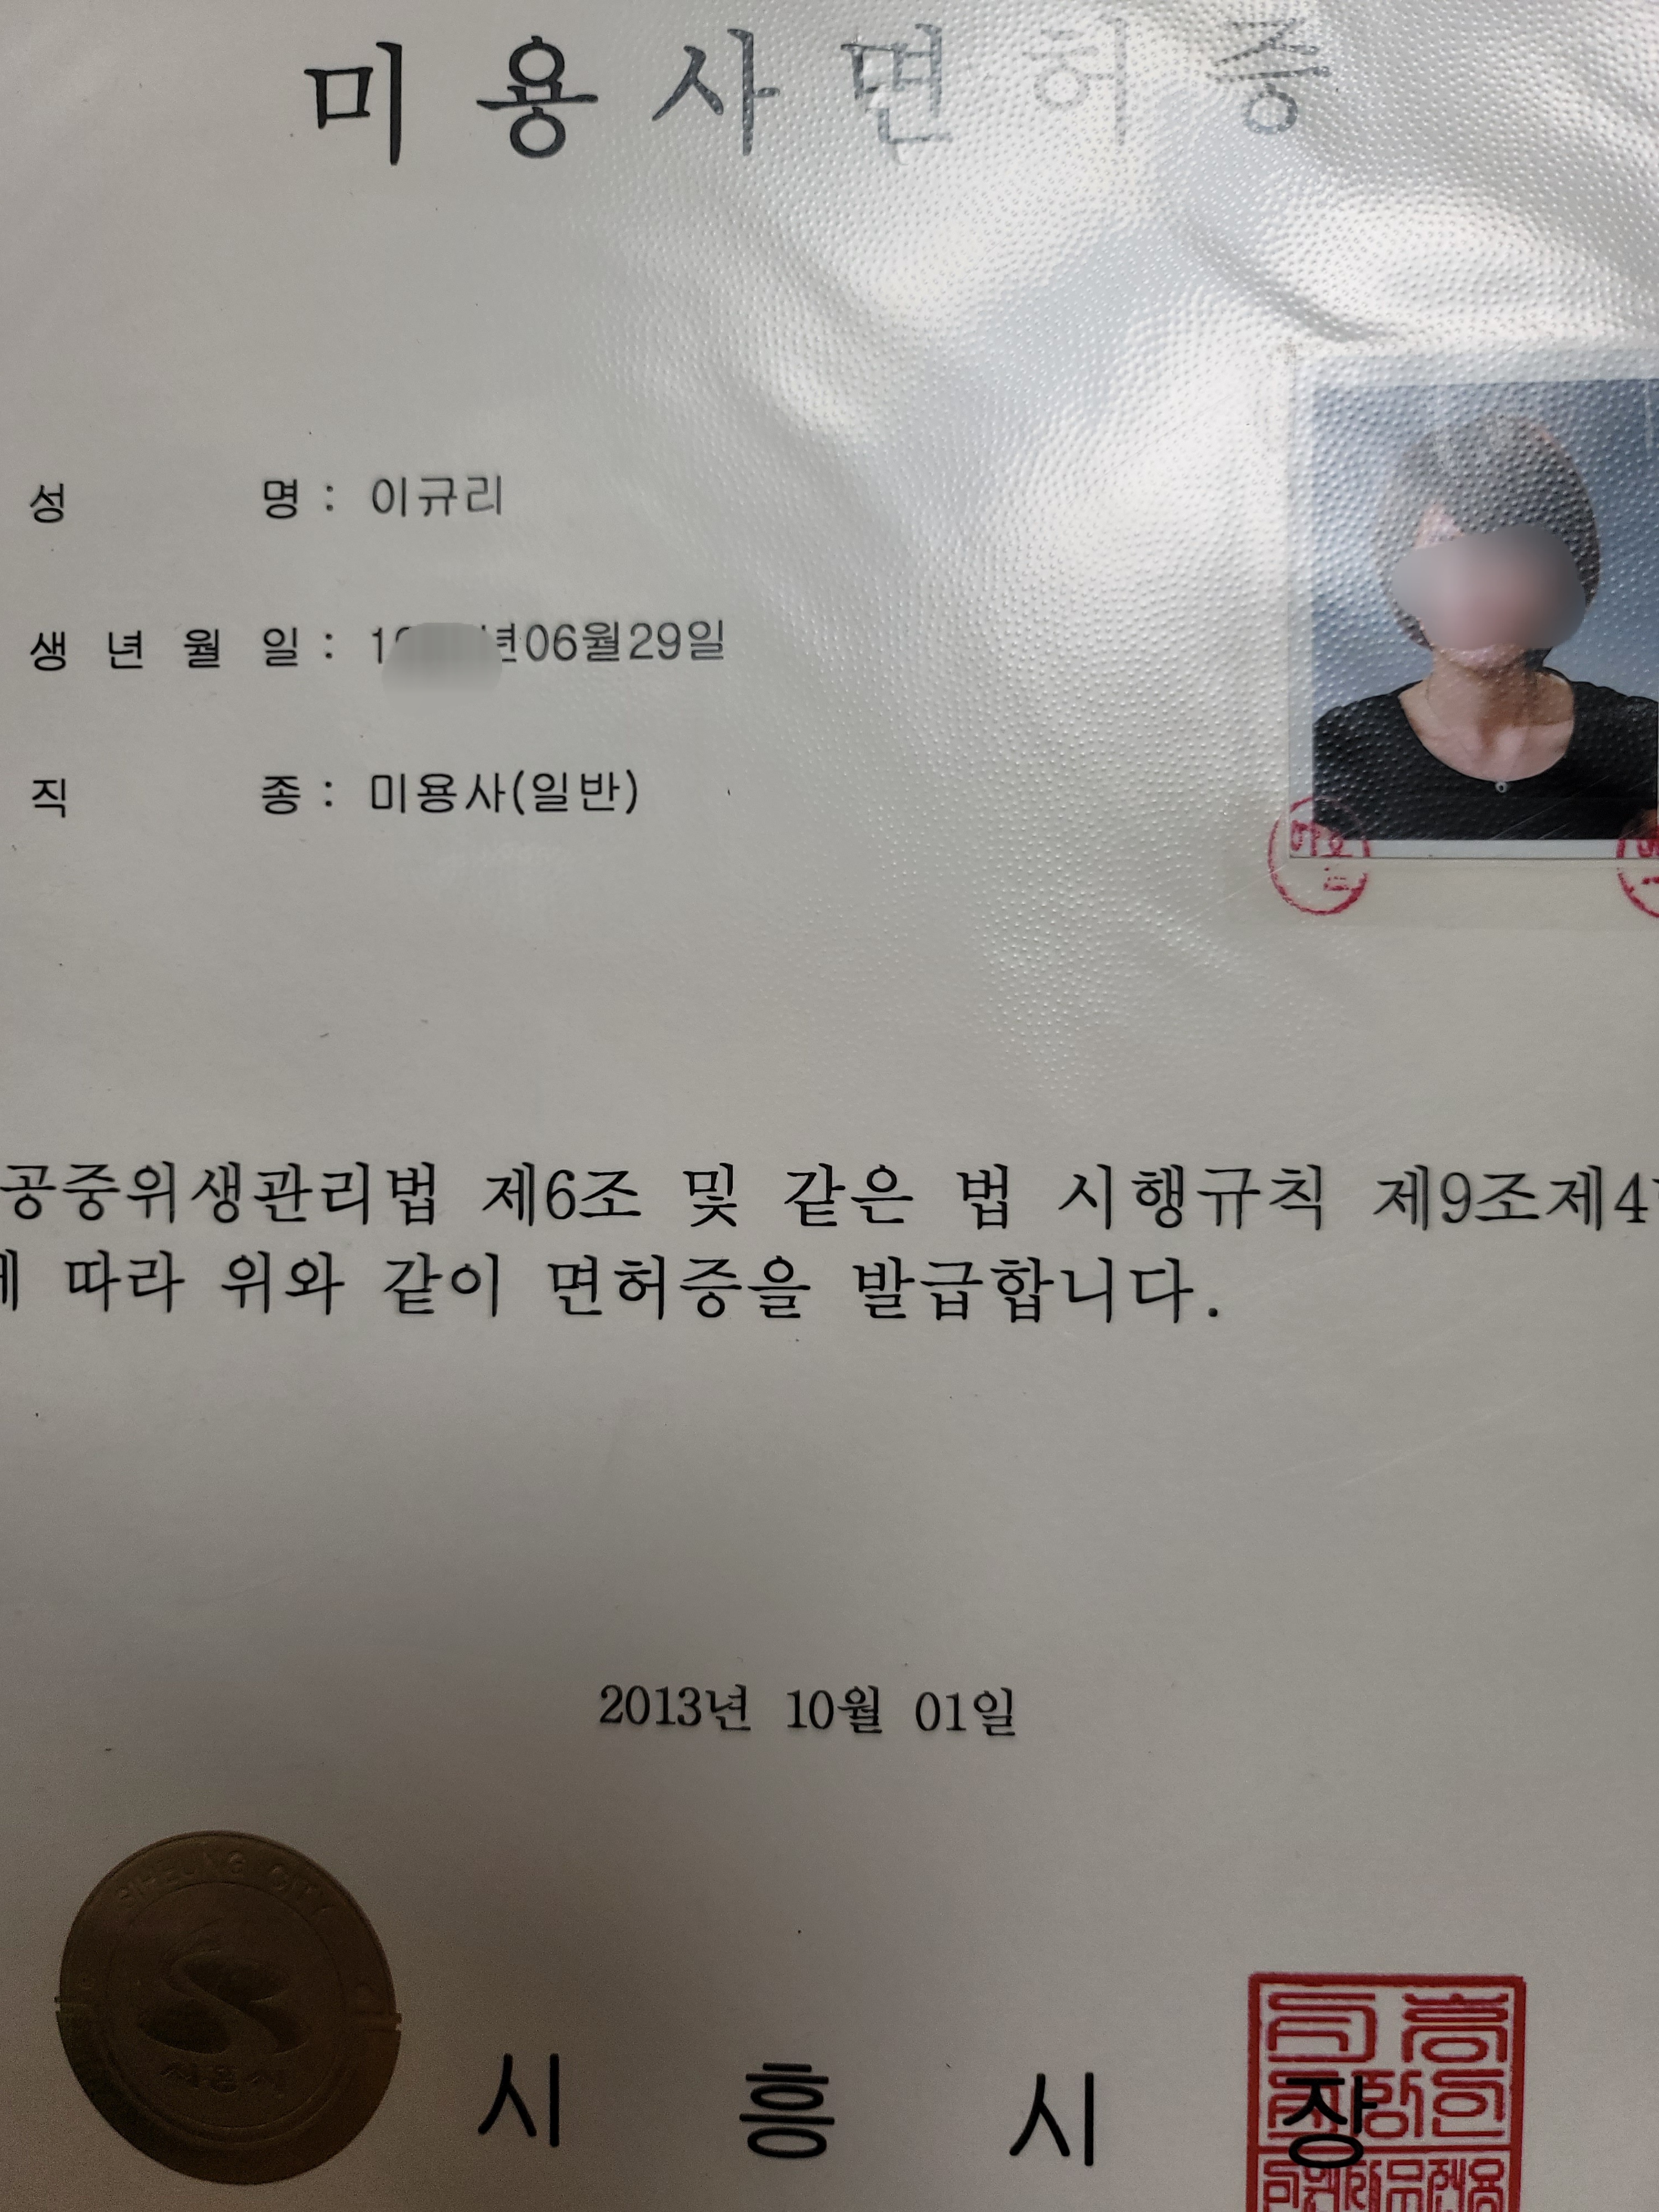 미용사면허증
성 명 : 이규리
생 년 월 일 : 1 년06월29일
직 종 : 미용사(일반)
공중위생관리법 제6조 및 같은 법 시행규칙 제9조제4
에 따라 위와 같이 면허증을 발급합니다.
2013년 10월 01일
SIHEUNG CITY
시흥시
시 흥 시 장